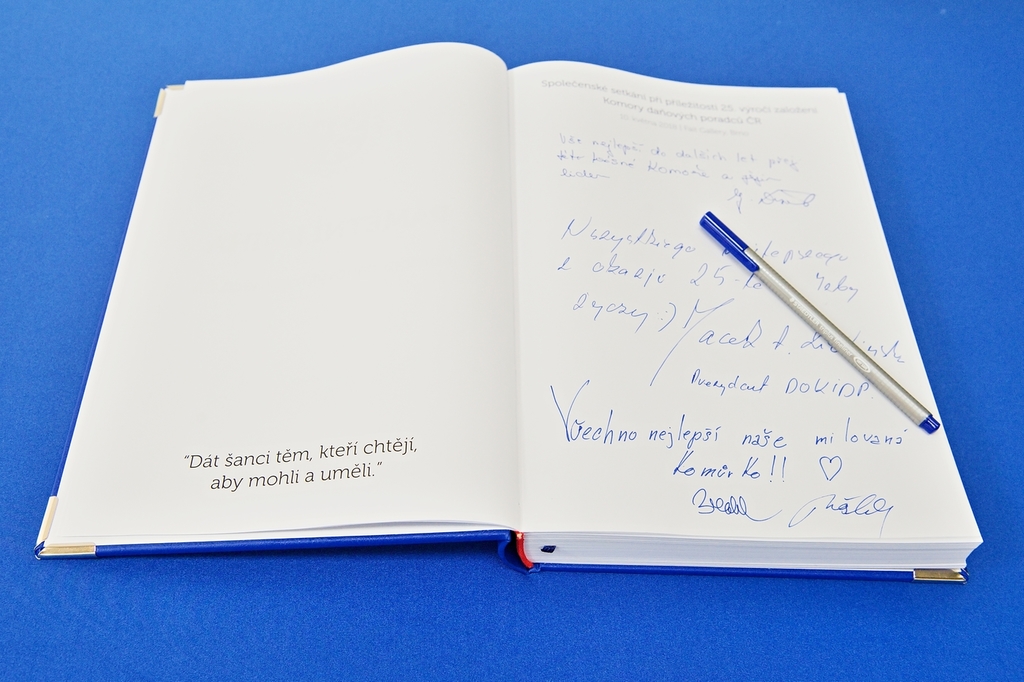 “Dát šanci těm, kteří chtějí,
aby mohli a uměli.”
Společenské setkání při příležitosti 25. výročí založení
Komory daňových poradců ČR
Vše nejlepší do dalších let přeji
této krásné Komoře a jejím
lidem
Wszystkiego najlepszego
z okazji 25-le
życzy :) Jacek
DOKIDP.
Všechno nejlepší naše milovaná
Komůrko!! ♡